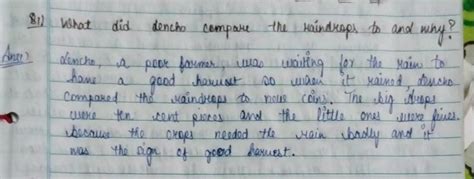 Q1) What did dencho compare the raindrops to and why?
Ans:) Lencho, a poor farmer, was waiting for the rain to
have a good harvest so when it rained dencho
compared the raindrops to new coins. The big drops
were ten cent pieces and the little ones were fives.
because the crops needed the rain badly and it
was the sign of good harvest.